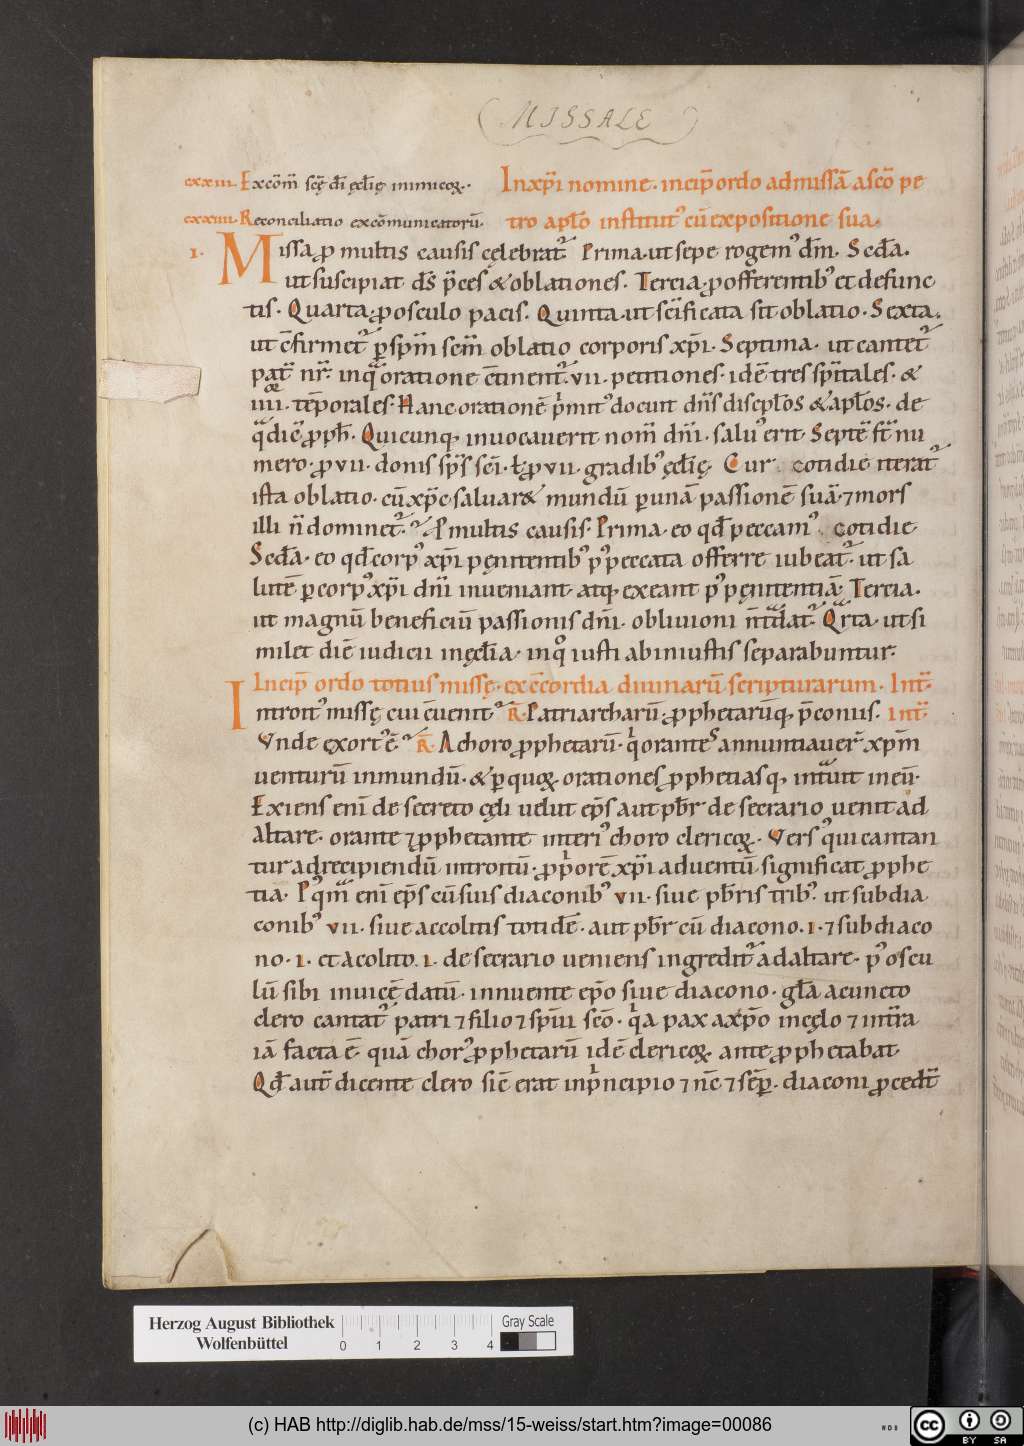 (MISSALE)
cxxiii. Excōm̄ scę̄ dī ęcl̄ię inimicoꝝ.
cxxiiii. Reconciliatio excōmunicatorū.
In xp̄i nomine. incip̄ ordo ad missā a scō pe
tro apl̄o institut᾽ cū expositione sua.
I. Missa ꝓ multis causis cęlebrat᷑. Prima. ut sepe rogem᾽ dm̄. Scd̄a.
ut suscipiat ds̄ p̄ces & oblationes. Tercia. ꝓ offerentib᾽ et defunc
tis. Quarta. ꝓ osculo pacis. Quinta. ut sc̄ificata sit oblatio. Sexta.
ut c̄firmet᷑ ꝑ spm̄ scm̄ oblatio corporis xp̄i. Septima. ut cantet᷑
pat̄ nr̄. in qua oratione c̄tinent᷑. vii. petitiones. idē tres spi̅tales. &
iiii. tēporales. Hanc orationē pͥmit᾽ docuit dn̄s discipl̄os & apl̄os. de
q̄ dic̄ ꝓph̄. Quicunq; inuocauerit nom̄ dn̄i. salu᾽ erit. Septē ft̄ nu
mero. ꝓ vii. donis sp̄s sc̄i. ł ꝓ vii. gradib᾽ ęcl̄ię. Cur cotidie iterat᷑
ista oblatio. cū xp̄c saluar& mundū ꝑ unā passionē suā. ⁊ mors
illi n̄ dominet᷑. Ꝓ multis causis. Prima. eo qd̄ peccam᾽ cotidie
Scd̄a. eo qd̄ corp᾽ xp̄i pęnitentib᾽ p᾽ peccata offerre iubeat᷑. ut sa
lutē ꝑ corp᾽ xp̄i dn̄i inueniant. atq; exeant p᾽ pęnitentiā. Tercia.
ut magnū beneficiū passionis dn̄i. obliuioni n̄ t᷑dat᷑. Qᷓrta. ut si
milet diē iudicii in ęcl̄ia. in qͦ iusti ab iniustis separabuntur.
Incip̄ ordo totius missę. ex c̄cordia diuinarū scripturarum. Int̄.
Introit᾽ missę cui c̄uenit. R̄. Patriarcharū. ꝓphetarūq; p̄conius. Int̄.
Vnde exort᾽ ē. R̄. A choro ꝓphetarū. qͥ orantes annuntiauer̄ xpm̄
uenturū in mundū. & ꝑ quoꝝ orationes ꝓphetiasq; intᷓuit in eū.
Exiens enī de secreto cęli uelut ep̄s aut pb̄r de secrario uenit ad
Altare. orante ⁊ ꝓphetante interi᾽ choro clericoꝝ. Vers᾽ qui cantan
tur ad recipiendū introitū. ꝓpͥorē xp̄i aduentū significat ꝓphe
tia. P᾽qᷓm enī ep̄s cū suis diaconib᾽ vii. siue pb̄ris trib᾽. ut subdia
conib᾽ vii. siue accolitis totidē. aut pb̄r cū diacono. i. ⁊ subdiaco
no. i. et acolito. i. de secrario ueniens ingredit᷑ ad altare. p᾽ oscu
lū sibi inuicē datū. innuente ep̄o siue diacono. gl̄a a cuncto
clero cantat᷑ patri ⁊ filio ⁊ spi̅ui scō. qͥa pax a xp̄o in cęlo ⁊ in t̄ra
iā facta ē. quā chor᾽ ꝓphetarū idē clericoꝝ ante ꝓphetabat.
Qd̄ aut̄ dicente clero sic̄ erat in pͥncipio ⁊ nc̄ ⁊ sēꝑ. diaconi ꝓcedt̄
Herzog August Bibliothek
Wolfenbüttel
0 1 2 3 4
Gray Scale
(c) HAB http://diglib.hab.de/mss/15-weiss/start.htm?image=00086
WDB
cc
BY SA